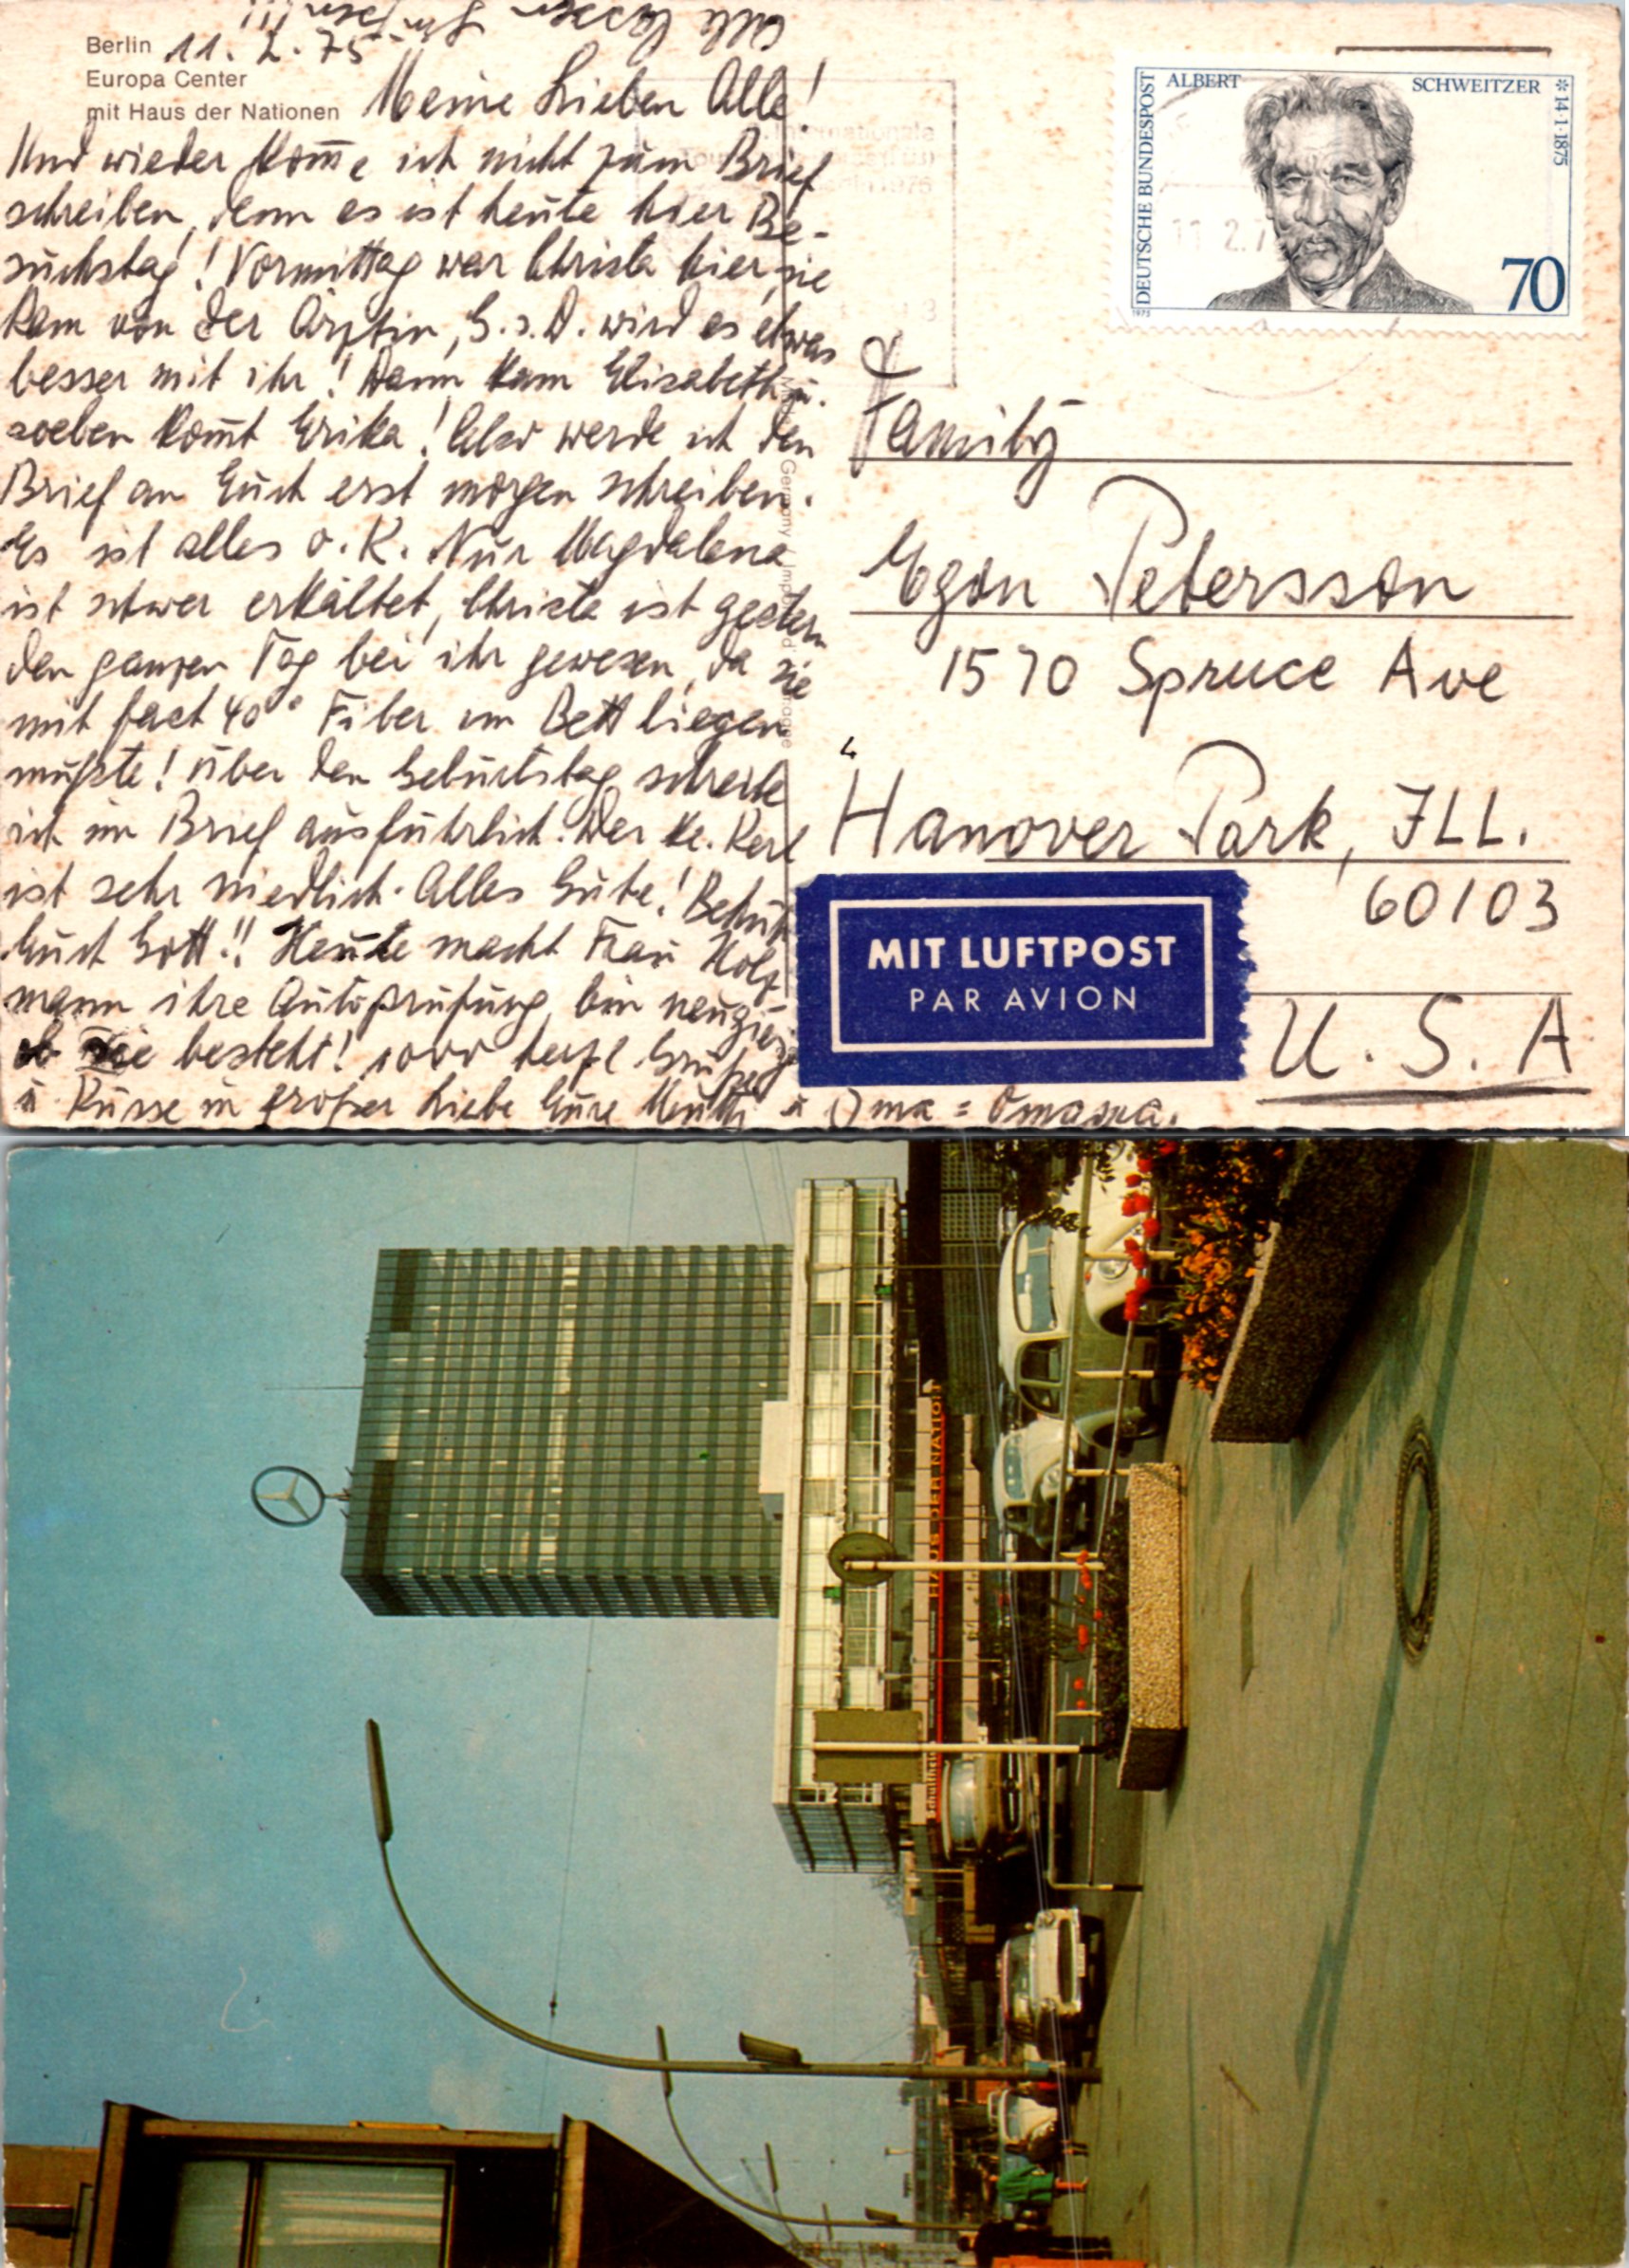 Berlin 11. 2. 75
Europa Center
mit Haus der Nationen
Meine Lieben Alle!
Und wieder kom̅e ich nicht zum Brief
schreiben, denn es ist heute hier Be-
suchstag! Vormittag war Christa hier, sie
kam von der Ärztin, G. s. D. wird es etwas
besser mit ihr! Dann kam Elisabeth u.
soeben kom̅t Erika! Also werde ich den
Brief an Euch erst morgen schreiben.
Es ist alles o. K. Nur Magdalena
ist schwer erkältet, Christa ist gestern
den ganzen Tag bei ihr gewesen, da sie
mit fast 40° Fiber im Bett liegen
mußte! über den Geburtstag schreibe
ich im Brief ausführlich. Der kl. Kerl
ist sehr niedlich. Alles Gute! Behüt
Euch Gott!! Heute macht Frau Holz-
mann ihre Autoprüfung, bin neugierig
ob Sie besteht! 1000 herzl Grüße
u Küsse in großer Liebe Eure Mutti u Oma = Omama.
DEUTSCHE BUNDESPOST
ALBERT SCHWEITZER
* 14·1·1875
1975
70
11 2.7
Internationale
Family
Egon Petersson
1570 Spruce Ave
Hanover Park, ILL.
60103
U. S. A
MIT LUFTPOST
PAR AVION
HAUS DER NATION
Schultheis